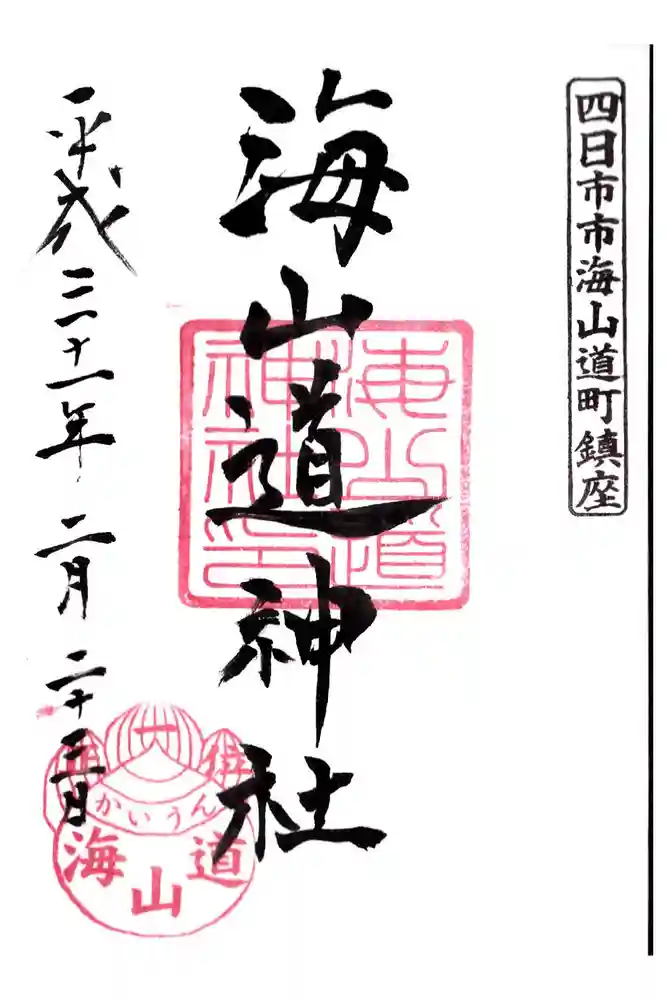 四日市市海山道町鎮座
海山道神社
海山道
神社印
平成三十一年二月二十三日
正一位
かいうん
海山道